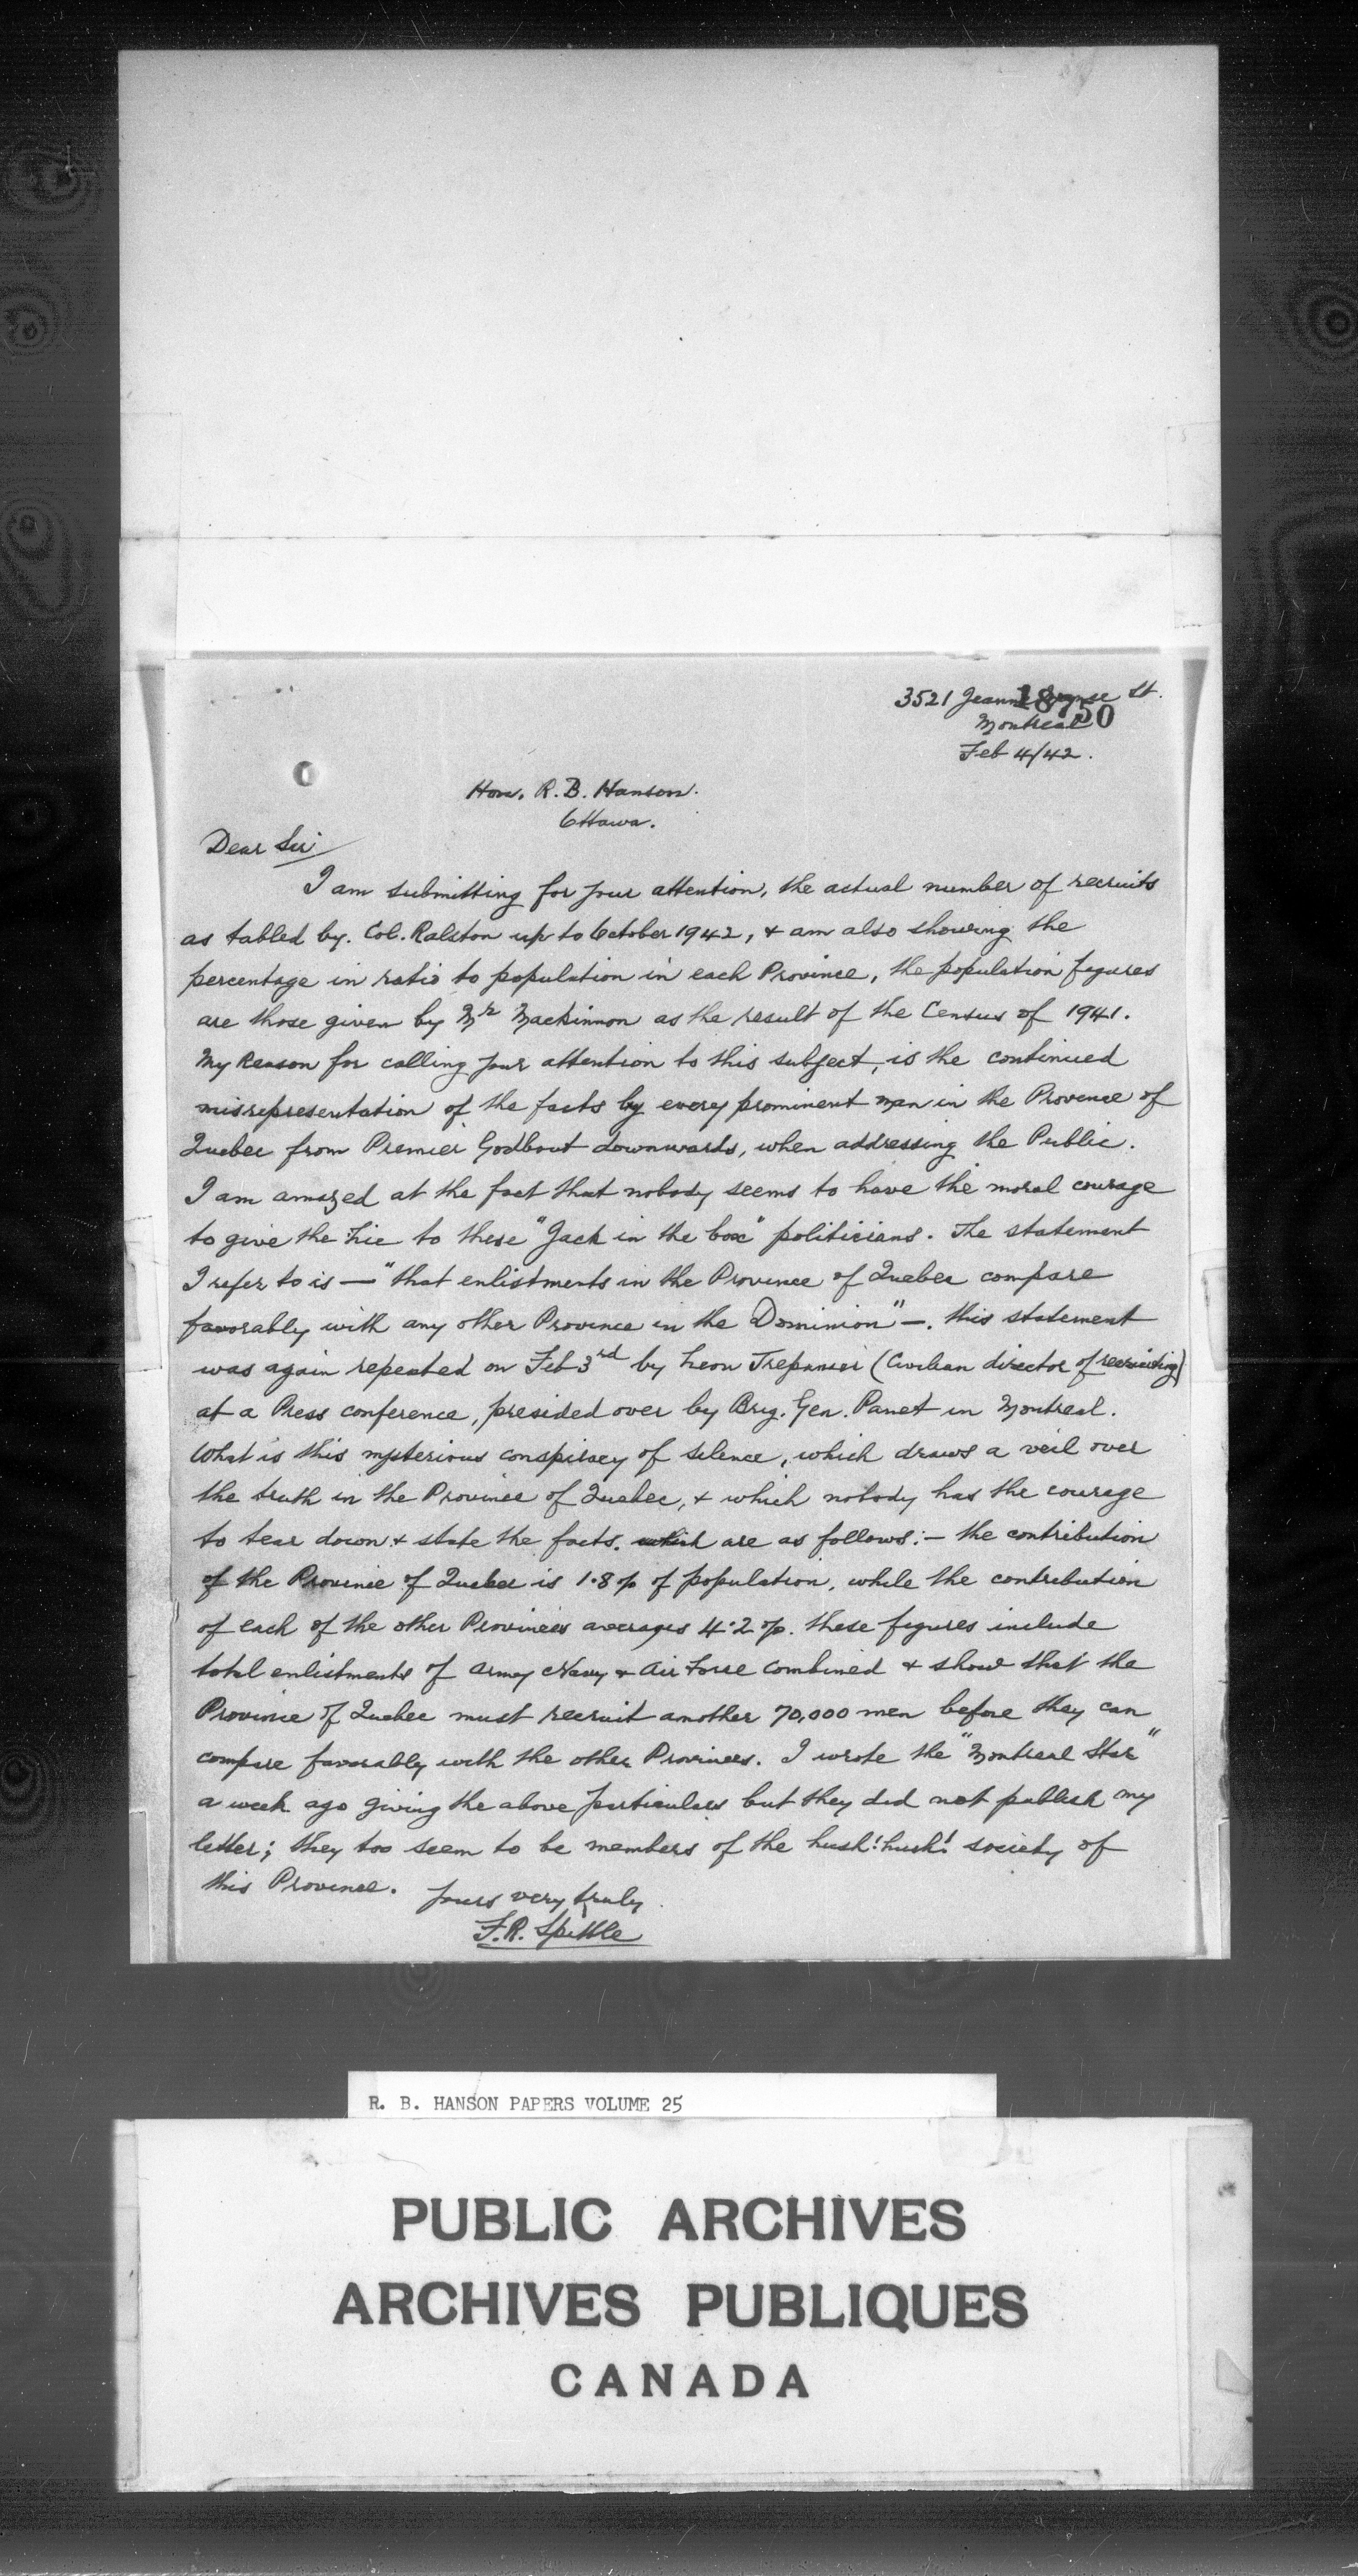 3521 Jeanne Mance St.
18750
Montreal
Feb 4/42.
Hon. R. B. Hanson.
Ottawa.
Dear Sir
I am submitting for your attention, the actual number of recruits
as tabled by. Col. Ralston up to October 1942, & am also showing the
percentage in ratio to population in each Province, the population figures
are those given by Mr Mackinnon as the result of the Census of 1941.
My Reason for calling your attention to this subject, is the continued
misrepresentation of the facts by every prominent man in the Province of
Quebec from Premier Godbout downwards, when addressing the Public.
I am amazed at the fact that nobody seems to have the moral courage
to give the Lie to these "Jack in the box" politicians. The statement
I refer to is — "that enlistments in the Province of Quebec compare
favorably with any other Province in the Dominion" —. this statement
was again repeated on Feb 3rd by Leon Trepanier (Civilian director of recruiting)
at a Press conference, presided over by Brig. Gen. Panet in Montreal.
What is this mysterious conspiracy of silence, which draws a veil over
the truth in the Province of Quebec, & which nobody has the courage
to tear down & state the facts. which are as follows:— the contribution
of the Province of Quebec is 1.8 % of population, while the contribution
of each of the other Provinces averages 4.2 %. these figures include
total enlistments of Army Navy & Air Force combined & show that the
Province of Quebec must recruit another 70,000 men before they can
compare favorably with the other Provinces. I wrote the "Montreal Star"
a week ago giving the above particulars but they did not publish my
letter; they too seem to be members of the hush! hush! society of
this Province.
Yours very truly
F.R. Spittle
R. B. HANSON PAPERS VOLUME 25
PUBLIC ARCHIVES
ARCHIVES PUBLIQUES
CANADA